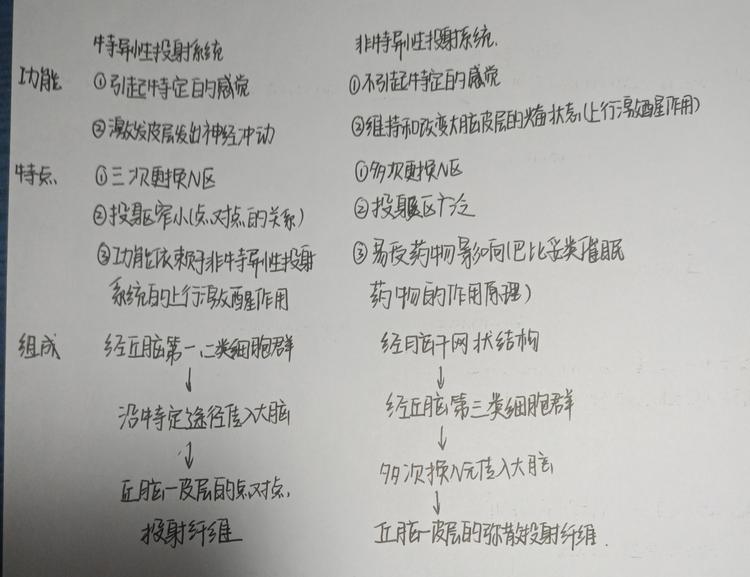 特异性投射系统 非特异性投射系统.
功能 ①引起特定的感觉 ①不引起特定的感觉
②激发皮层发出神经冲动 ②维持和改变大脑皮层的兴奋状态(上行激醒作用)
特点 ①三次更换N区 ①多次更换N区
②投射区窄小(点对点的关系) ②投射区广泛
③功能依赖于非特异性投射 ③易受药物影响(巴比妥类催眠
系统的上行激醒作用 药物的作用原理)
组成 经丘脑第一、二类细胞群 经脑干网状结构
↓ ↓
沿特定途径传入大脑 经丘脑第三类细胞群
↓ ↓
丘脑—皮层的点对点 多次换N元传入大脑
投射纤维 ↓
丘脑—皮层的弥散投射纤维.